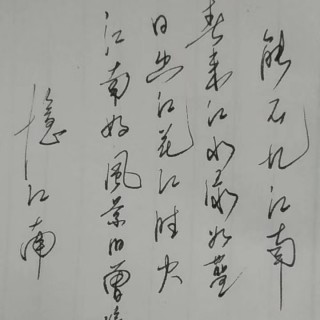 憶江南
江南好风景旧曾谙
日出江花红胜火
春来江水绿如蓝
能不忆江南